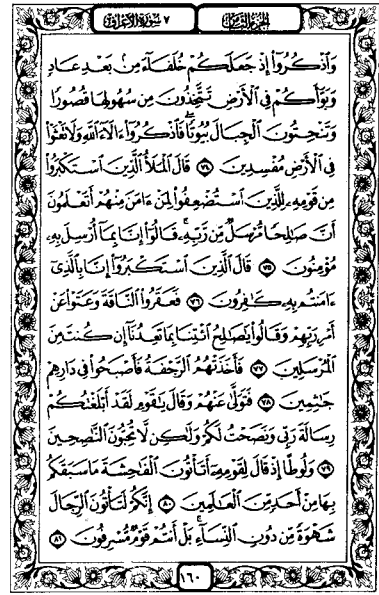 الجزء الثامن
٧ سورة الأعراف
وَاذْكُرُوا إِذْ جَعَلَكُمْ خُلَفَاءَ مِنْ بَعْدِ عَادٍ
وَبَوَّأَكُمْ فِي الْأَرْضِ تَتَّخِذُونَ مِنْ سُهُولِهَا قُصُورًا
وَتَنْحِتُونَ الْجِبَالَ بُيُوتًا فَاذْكُرُوا ءَالَاءَ اللَّهِ وَلَا تَعْثَوْا
فِي الْأَرْضِ مُفْسِدِينَ ٧٤ قَالَ الْمَلَأُ الَّذِينَ اسْتَكْبَرُوا
مِنْ قَوْمِهِ لِلَّذِينَ اسْتُضْعِفُوا لِمَنْ ءَامَنَ مِنْهُمْ أَتَعْلَمُونَ
أَنَّ صَالِحًا مُرْسَلٌ مِنْ رَبِّهِ قَالُوا إِنَّا بِمَا أُرْسِلَ بِهِ
مُؤْمِنُونَ ٧٥ قَالَ الَّذِينَ اسْتَكْبَرُوا إِنَّا بِالَّذِي
ءَامَنْتُمْ بِهِ كَافِرُونَ ٧٦ فَعَقَرُوا النَّاقَةَ وَعَتَوْا عَنْ
أَمْرِ رَبِّهِمْ وَقَالُوا يَاصَالِحُ ائْتِنَا بِمَا تَعِدُنَا إِنْ كُنْتَ مِنَ
الْمُرْسَلِينَ ٧٧ فَأَخَذَتْهُمُ الرَّجْفَةُ فَأَصْبَحُوا فِي دَارِهِمْ
جَاثِمِينَ ٧٨ فَتَوَلَّى عَنْهُمْ وَقَالَ يَاقَوْمِ لَقَدْ أَبْلَغْتُكُمْ
رِسَالَةَ رَبِّي وَنَصَحْتُ لَكُمْ وَلَكِنْ لَا تُحِبُّونَ النَّاصِحِينَ
٧٩ وَلُوطًا إِذْ قَالَ لِقَوْمِهِ أَتَأْتُونَ الْفَاحِشَةَ مَا سَبَقَكُمْ
بِهَا مِنْ أَحَدٍ مِنَ الْعَالَمِينَ ٨٠ إِنَّكُمْ لَتَأْتُونَ الرِّجَالَ
شَهْوَةً مِنْ دُونِ النِّسَاءِ بَلْ أَنْتُمْ قَوْمٌ مُسْرِفُونَ ٨١
١٦٠